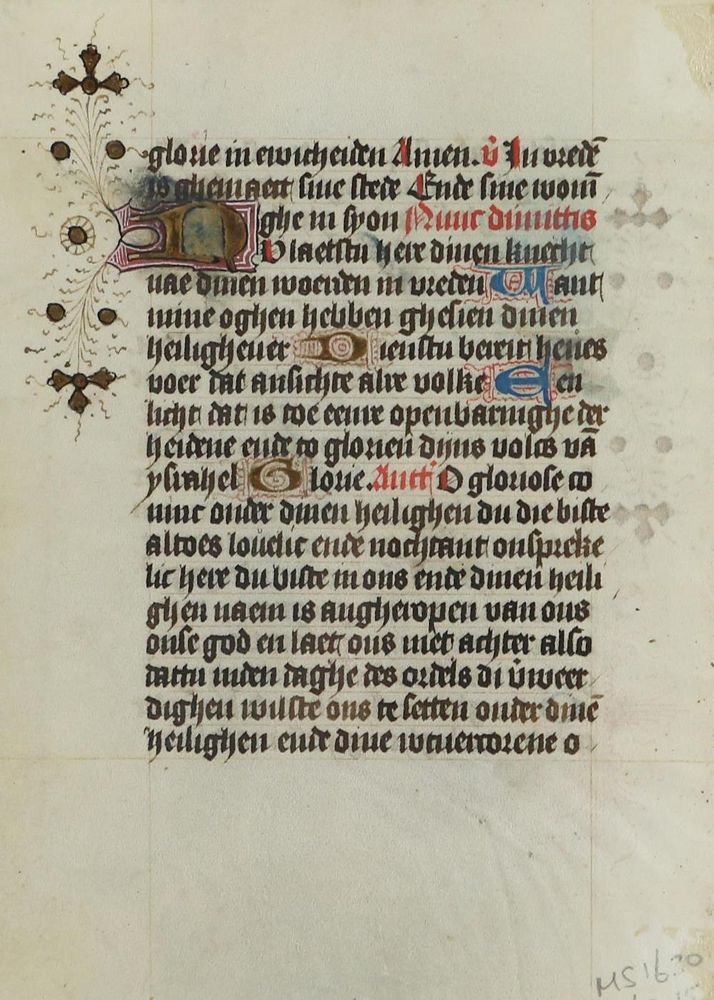 glorie in ewicheiden Amen. v̄ In vredē
is ghemaect sine stede Ende sine woniñ
ghe in syon Nunc dimittis
Nv laetstu here dinen knecht
nae dinen woerden in vreden Want
mine oghen hebben ghesien dinen
heiligheuer Dienstu bereit heues
voer dat ansichte alre volke Een
licht dat is toe eenre openbaringhe der
heidene ende to glorien dijns volcs vā
ysrahel Glorie. Antˀ O gloriose co
ninc onder dinen heilighen du die biste
altoes louelic ende nochtant onspreke
lic here du biste in ons ende dinen heili
ghen naem is angheropen van ons
onse god en laet ons niet achter also
dattu inden daghe des ordels di v̄weer
dighen wilste ons te setten onder dinē
heilighen ende dine wtuercorene o
MS 1630